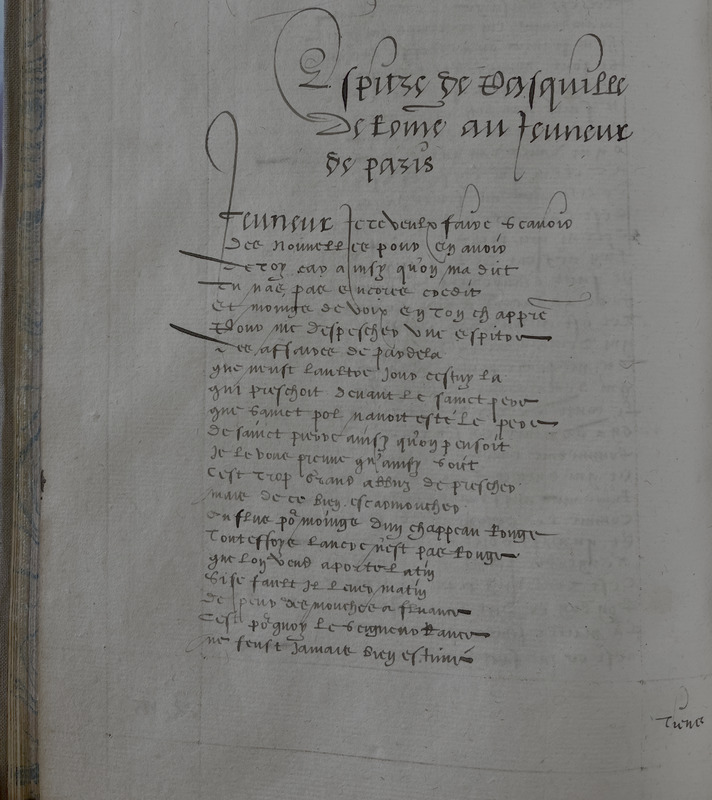 Espitre de Pasquille
de Rome au Jeuneur
de paris
Jeuneur Je te veulx faire scavoir
des nouvelles pour en avoir
de toy car ainsy qu'on ma dict
tu nas pas encores credit
et moings de voix en ton chappre
Pour me despescher une espitre
Des affaires de pardela
que neust laultre jour cestuy la
qui preschoit devant le sainct pere
que sainct pol navoit esté le pere
de sainct pierre ainsy qu'on pensoit
Je le vous prenne qu'ainsy soit
Cest trop grand abbuz de prescher
mais de ce bien escarmoucher
en fluc po moings dun chappeau Rouge
Touteffoys lancre n'est pas Rouge
que lon vend a porte latin
Si se fault Il lever matin
de peur des mouches a
Cest po quoy le seigneur Rance
ne feust Jamais bien estimé